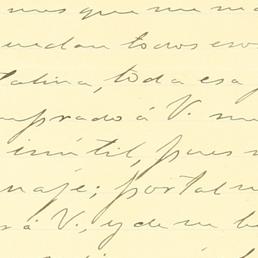 mes que me ma
uedan todos esos
talina, toda esa
mprado á V. mu
inútil, pues
naje; portal m
rá V., y de me he